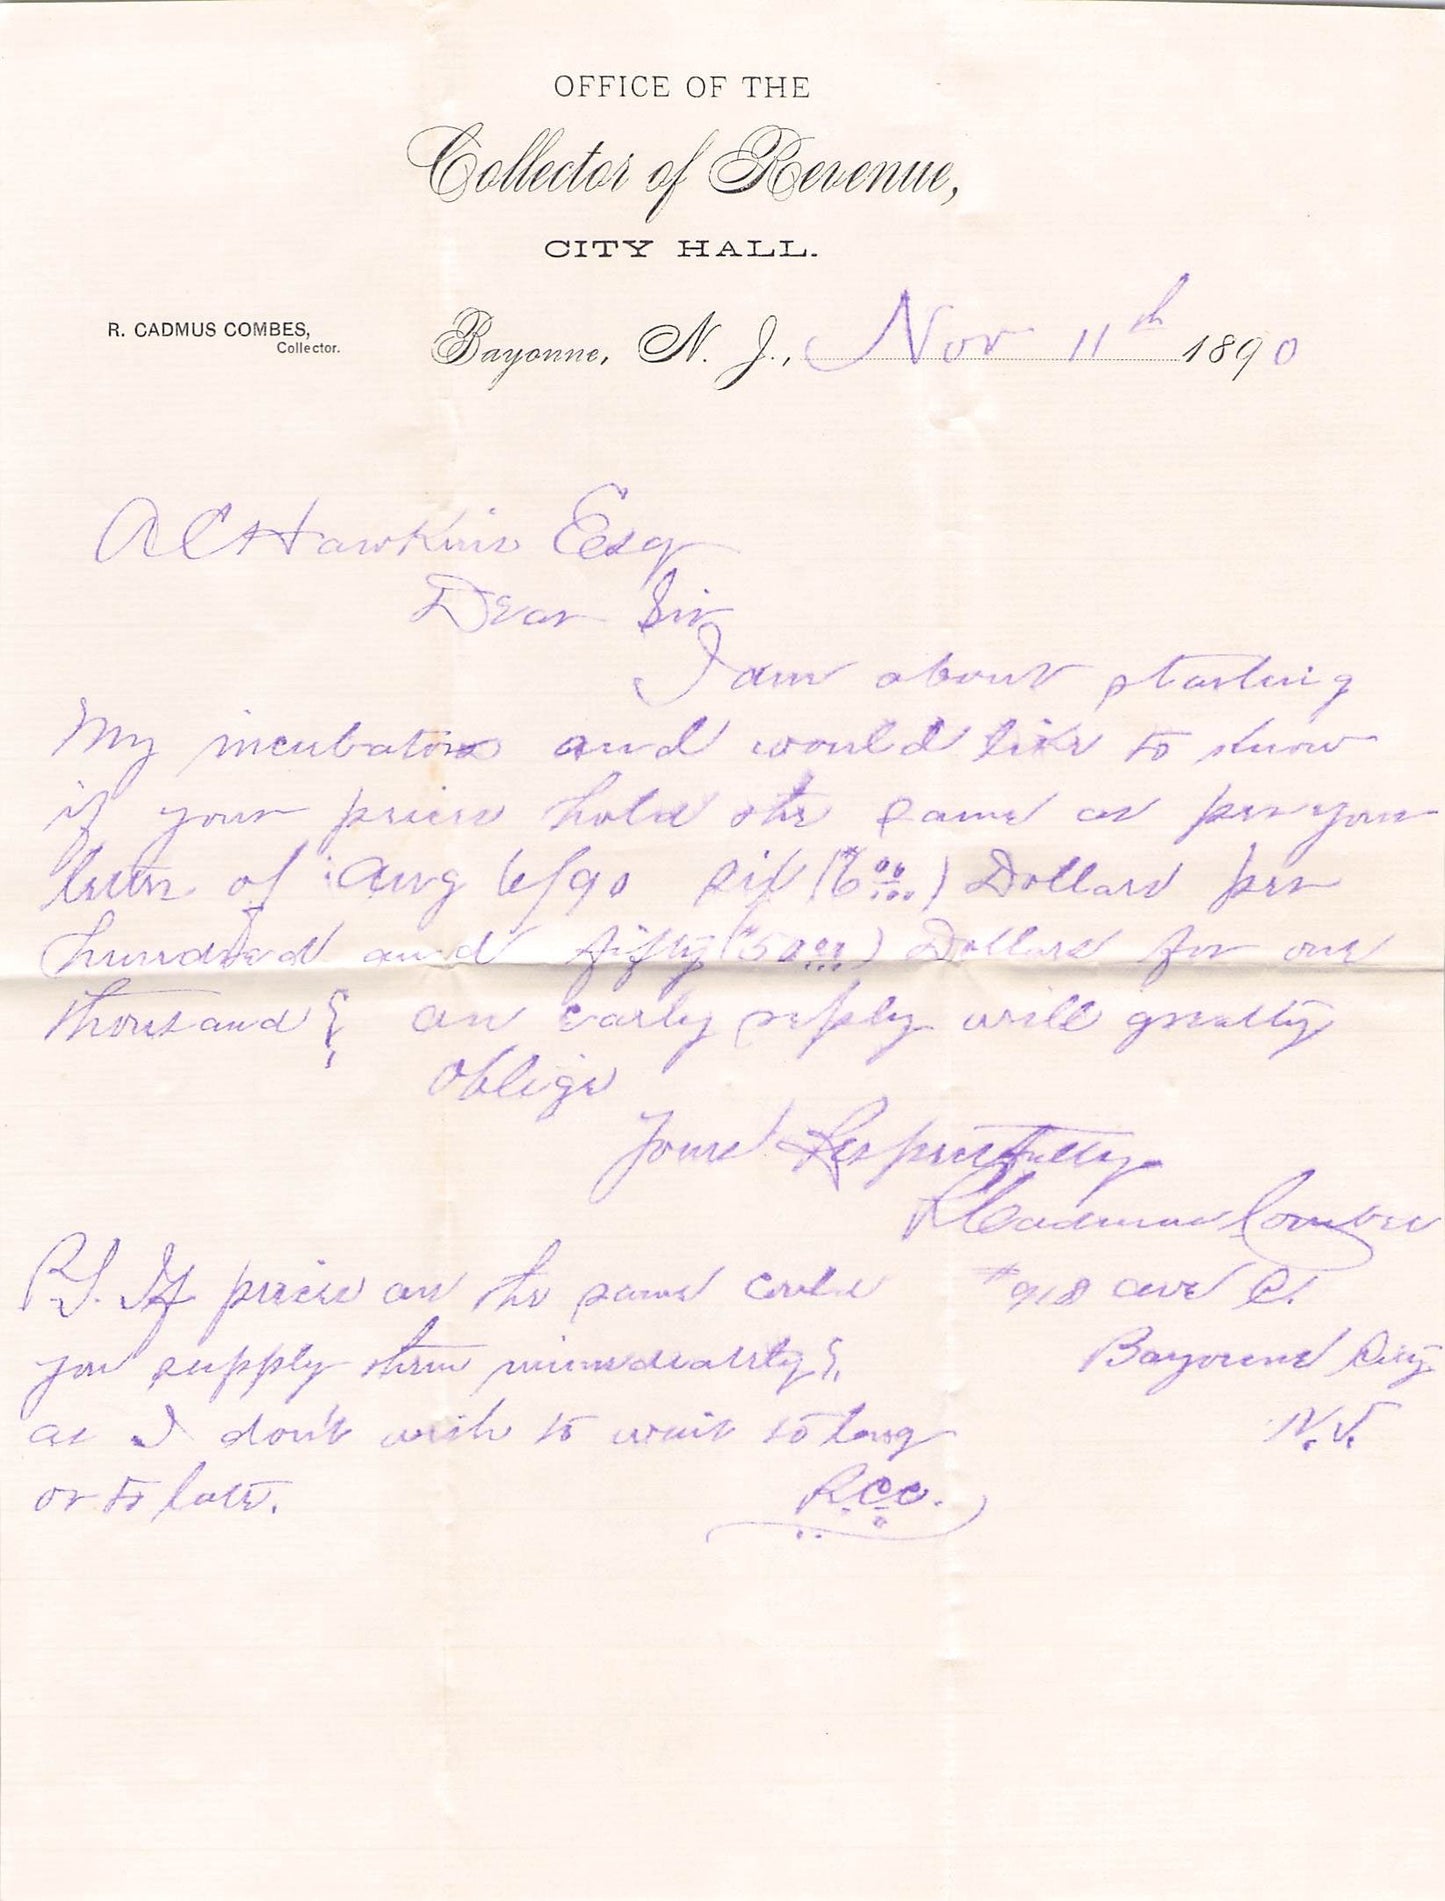 OFFICE OF THE
Collector of Revenue,
CITY HALL.
R. CADMUS COMBES,
Collector.
Bayonne, N. J., Nov 11th 1890
A C Hawkins Esq
Dear Sir
I am about starting
My incubators and would like to know
if your prices hold the same as per your
letter of Aug 6/90 six ($6 00/100) Dollars per
hundred and fifty ($50 00/100) Dollars for one
thousand? an early reply will greatly
oblige
Yours Respectfully
R Cadmus Combes
P.S. If prices are the same could
#918 ave C.
you supply them immediately?
Bayonne City
as I don't wish to wait to long
N.J.
or to late.
R.C.C.